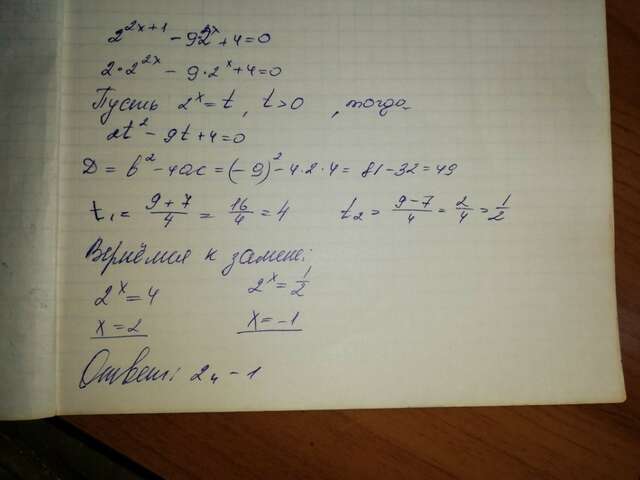 2^{2x+1} - 9·2^x + 4 = 0
2·2^{2x} - 9·2^x + 4 = 0
Пусть 2^x = t, t > 0, тогда
2t^2 - 9t + 4 = 0
D = b^2 - 4ac = (-9)^2 - 4·2·4 = 81 - 32 = 49
t₁ = \frac{9+7}{4} = \frac{16}{4} = 4 t₂ = \frac{9-7}{4} = \frac{2}{4} = \frac{1}{2}
Вернёмся к замене:
2^x = 4 2^x = \frac{1}{2}
x = 2 x = -1
Ответ: 2и -1